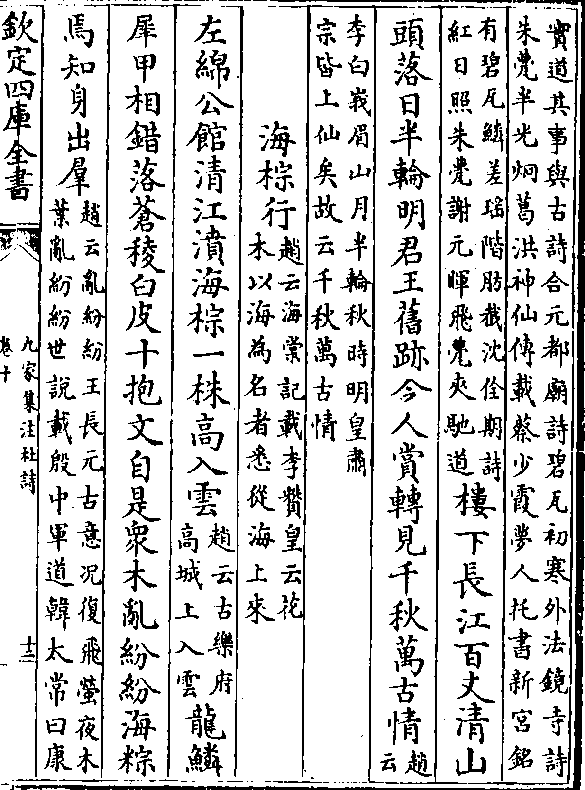 實道其事與古詩合元都廟詩碧瓦初寒外法鏡寺詩
朱甍半光炯葛洪神仙傳載蔡少霞夢人托書新宮銘
有碧瓦鱗差瑶階肪截沈佺期詩
紅日照朱甍謝元暉飛甍夾馳道
樓下長江百丈清山
頭落日半輪明君王舊跡今人賞轉見千秋萬古情
趙
云
李白峩眉山月半輪秋時明皇肅
宗皆上仙矣故云千秋萬古情
海椶行
趙云海棠記載李贊皇云花
木以海為名者悉從海上來
左綿公館清江濆海椶一株高入雲
趙云古樂府
高城上入雲
龍鱗
犀甲相錯落蒼稜白皮十抱文自是衆木亂紛紛海椶
焉知身出羣
趙云亂紛紛王長元古意况復飛螢夜木
葉亂紛紛世説載殷中軍道韓太常曰康
欽定四庫全書
九家集注杜詩
卷十
十三